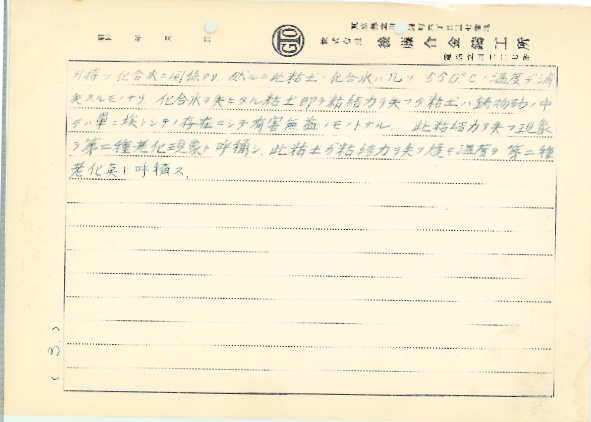 年 月
GTO
株式会社 後藤合金鋳工所
ガ持ツ化合水ニ関係アリ、然ルニ此粘土ノ化合水ハ凡ソ 550°Cノ温度デ消
失スルモノナリ、化合水ヲ失ヒタル粘土即チ粘結力ヲ失フタ粘土ハ鋳物砂ノ中
デハ単ニ埃トシテノ存在ニシテ有害無益ノモノトナル、 此粘結力ヲ失フ現象
ヲ第二種老化現象ト呼稱シ、此粘土ガ粘結力ヲ失フ 温度ヲ 第二種
老化点ト呼稱ス、
(3.)